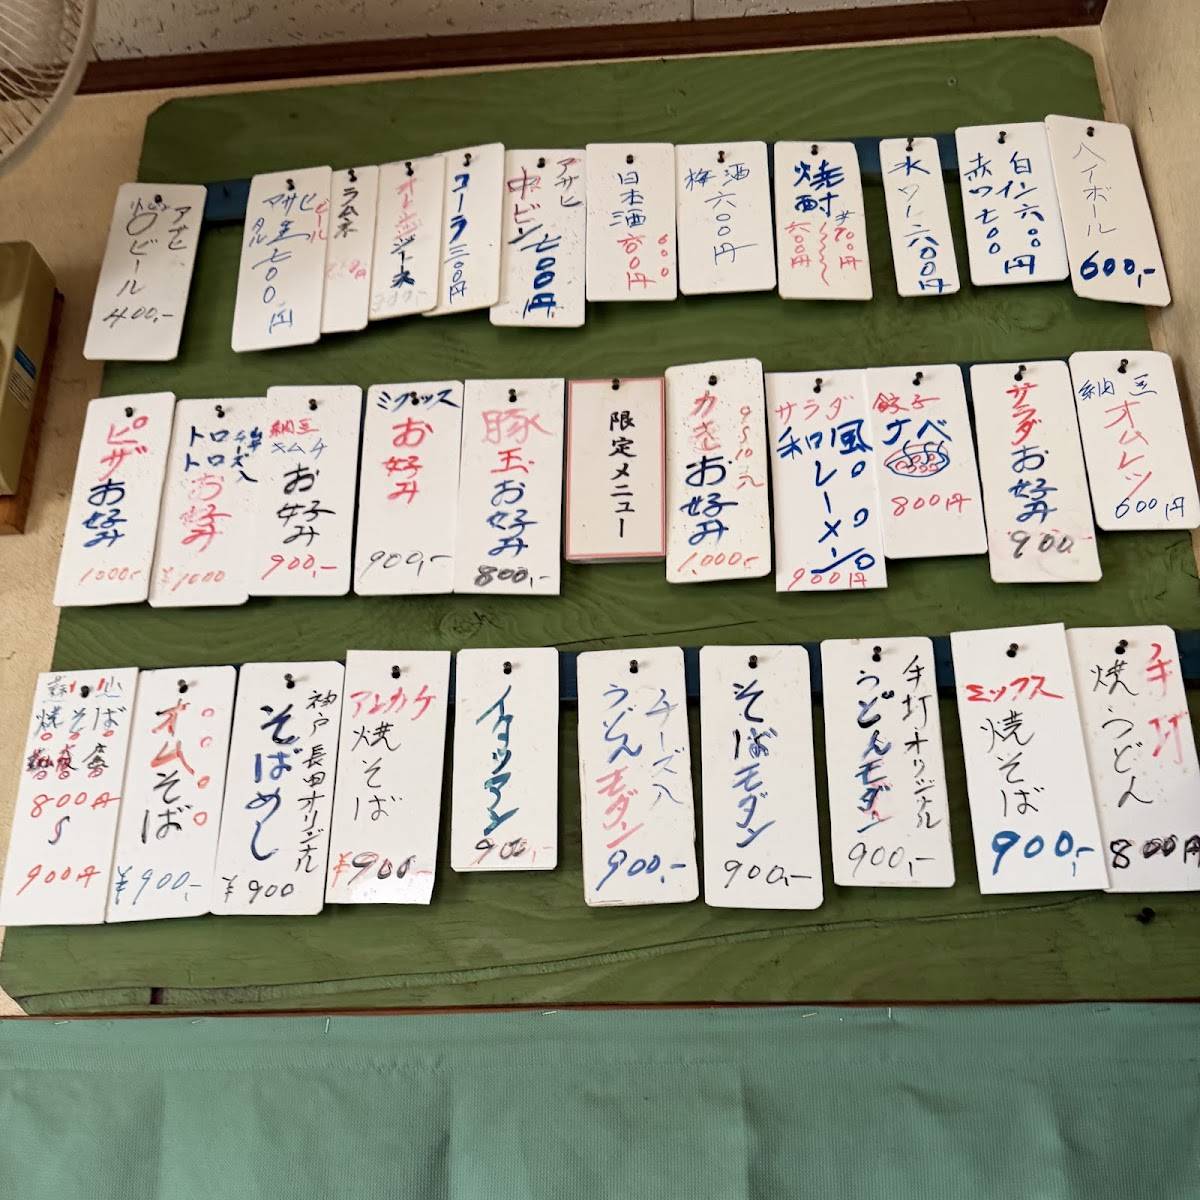 ハイボール
600,-
白
ワイン六〇〇円
赤ワイン七〇〇
水
六〇〇円
焼酎
六〇〇円
梅酒
六〇〇円
日本酒
六〇〇円
アサヒ
中ビン
七〇〇円
コーラ
三〇〇円
オレンジジュース
ラムネ
アサヒ
生ビール
七〇〇円
アサヒ
ビール
400,-
納豆
オムレツ
600円
サラダ
お好み
900
餃子
ナベ
800円
サラダ
和風
ラーメン
900円
かき
お好み
1,000.-
限定メニュー
豚玉
お好み
800,-
ミックス
お好み
900,-
納豆
キムチ
お好み
900,-
トロトロ
チーズ入
お好み
¥1000
ピザ
お好み
1000-
手打
焼うどん
800円
ミックス
焼そば
900,-
手打オリジナル
うどんモダン
900,-
そばモダン
900,-
チーズ入
うどんモダン
900,-
イタリアン
900,-
アレカケ
焼そば
¥900
神戸長田オリジナル
そばめし
¥900
オムそば
¥900,-
焼そば
800円
900円